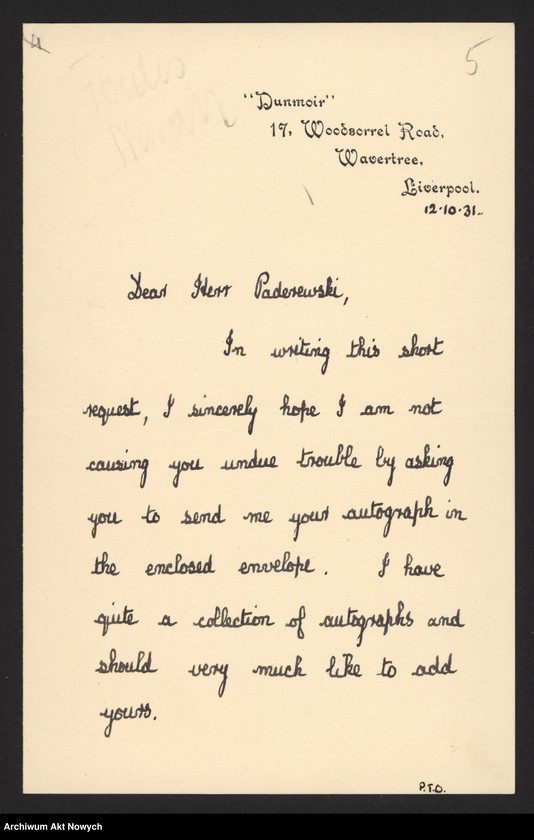 5
"Dunmoir"
17, Woodsorrel Road,
Wavertree,
Liverpool.
12.10.31.
Dear Herr Paderewski,
In writing this short
request, I sincerely hope I am not
causing you undue trouble by asking
you to send me your autograph in
the enclosed envelope. I have
quite a collection of autographs and
should very much like to add
yours.
P.T.O.
Archiwum Akt Nowych